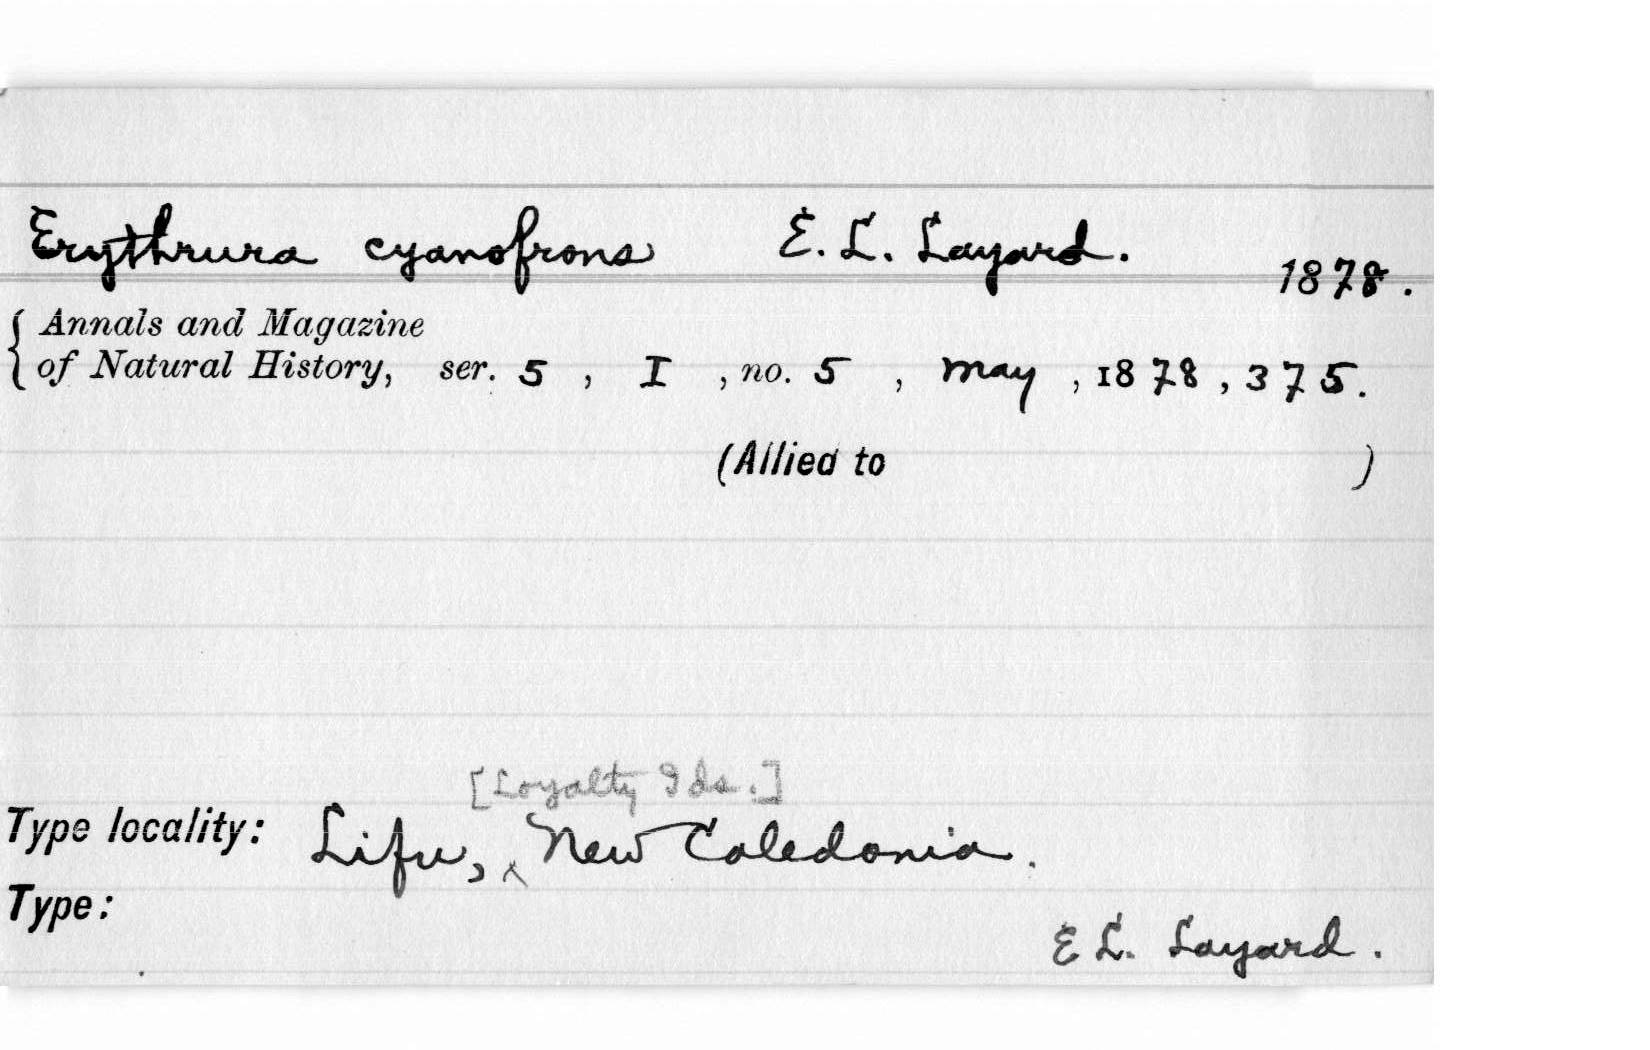 Erythrura cyanofrons E. L. Layard.
1878.
{ Annals and Magazine
of Natural History, ser. 5, I, no. 5, May, 1878, 375.
(Allied to )
[Loyalty Ids.]
Type locality: Lifu, ^ New Caledonia.
Type:
E L. Layard.